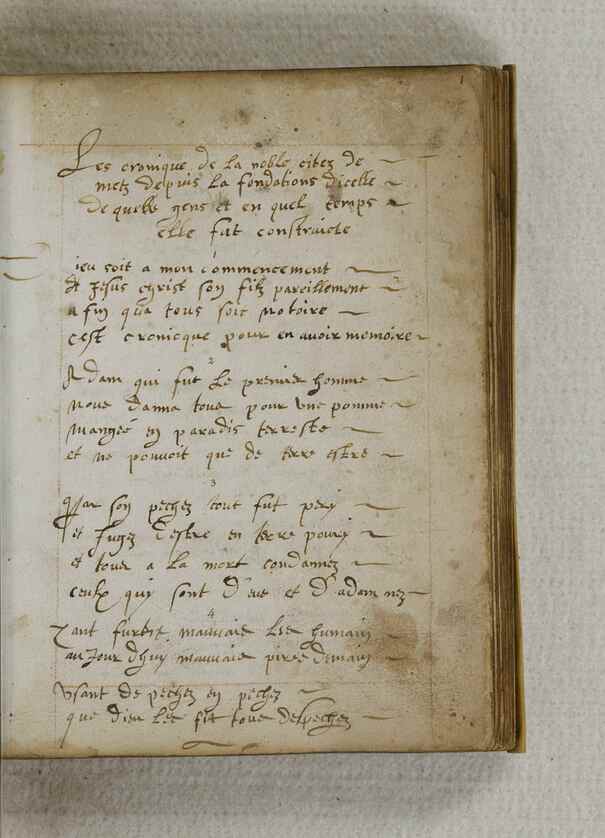 1
Les cronique de la noble citez de
metz depuis la fondations dicelle
de quelle gens et en quel temps
elle fut construicte
ieu soit a mon commencement
Et Jesus christ son filz pareillement
afin qua tous soit notoire
cest cronicque pour en avoir memoire
2
Adam qui fut le premier homme
nous damna tous pour une pomme
mangee en paradis terreste
et ne pouvoit que de terre estre
3
Par son pechez tout fut pery
et Jugez destre en terre poury
et tous a la mort condamnez
ceulx quy sont d'eve et d'adam nez
4
Tant furent mauvais les humain
auJourdhuy mauvais pires demain
usant de pechez en pechez
que dieu les fit tous despechez